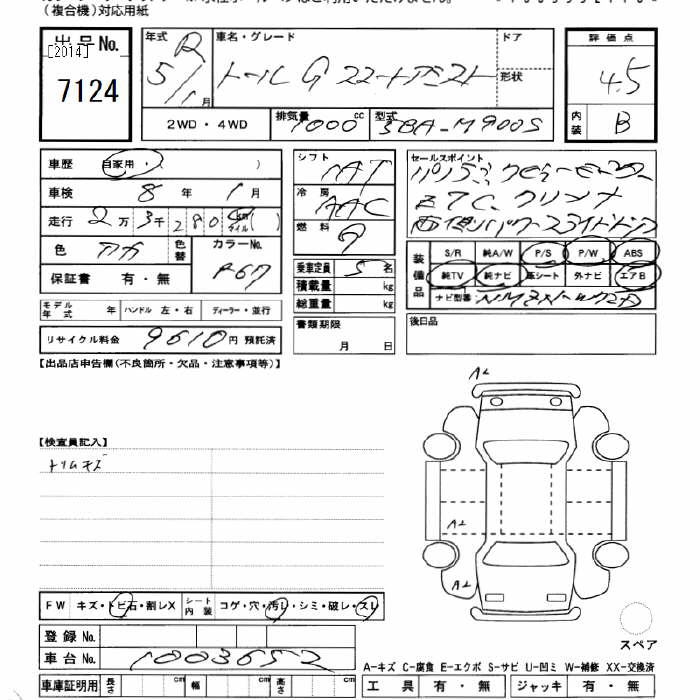 (複合機)対応用紙
出品No.
[2014]
7124
年式 R 5/1月
車名・グレード トールG
ドア
形状
評価点 4.5
内装 B
2WD・4WD
排気量 1000 cc
型式 5BA-M900S
車歴 自家用・( )
車検 8年 1月
走行 2万3千280 km マイル ( )
色 アカ
色替
カラーNo. R67
保証書 有・無
モデル年式 年
ハンドル 左・右
ディーラー・並行
リサイクル料金 9610円 預託済
シフト AT
冷房 AAC
燃料 G
乗車定員 5名
積載量 kg
総重量 kg
書類期限
月 日
セールスポイント
ETC
両側パワースライドドア
装備品
S/R 純A/W P/S P/W ABS
純TV 純ナビ 革シート 外ナビ エアB
ナビ型番
後日品
【出品店申告欄(不良箇所・欠品・注意事項等)】
【検査員記入】
トリムキズ
A2
A2
A2
FW キズ・トビ石・割レX
シート内装 コゲ・穴・汚レ・シミ・破レ・スレ
登録No.
車台No. 1003652
車庫証明用 長さ cm 幅 cm 高さ cm
スペア
A-キズ C-腐食 E-エクボ S-サビ U-凹ミ W-補修 XX-交換済
工具 有・無
ジャッキ 有・無